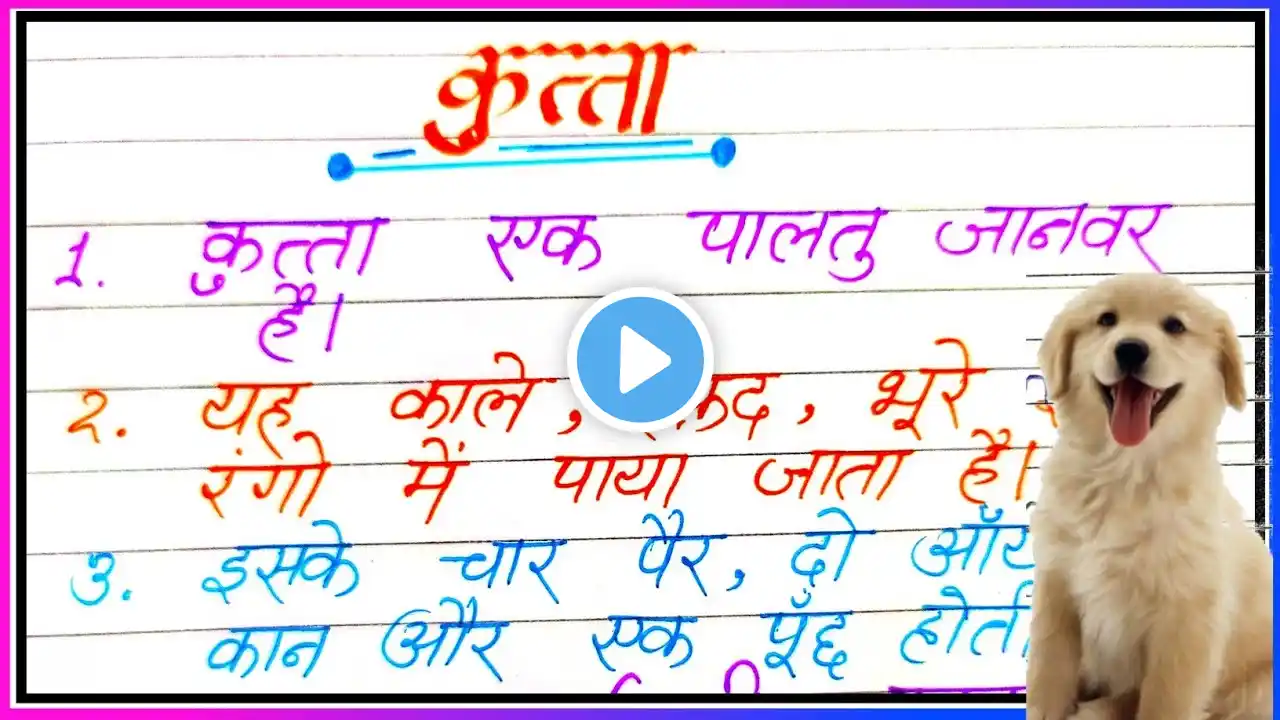 कुत्ता
1. कुत्ता एक पालतु जानवर
है।
२. यह काले, भूरे
रंगो में पाया जाता है।
३. इसके चार पैर, दो
कान और एक पूँछ